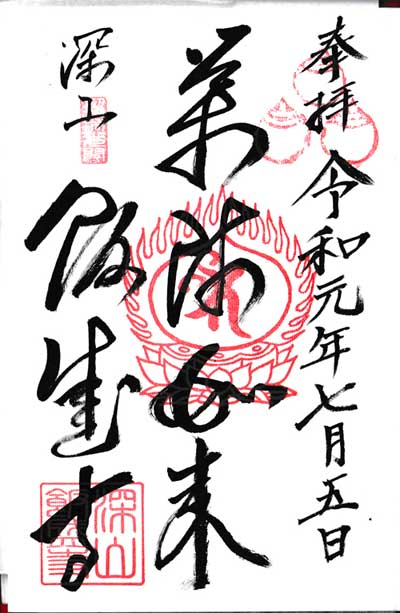 奉拝 令和元年七月五日
薬師如来
深山
飯盛寺
深山
飯盛寺